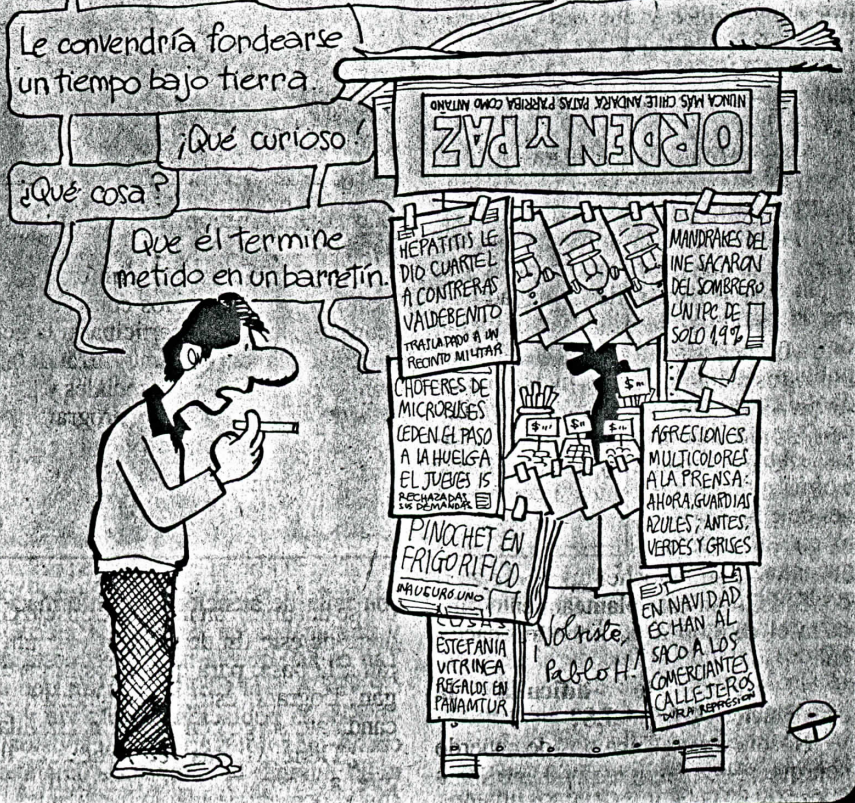 Le convendría fondearse
un tiempo bajo tierra.
¡Qué curioso!
¿Qué cosa?
Que él termine
metido en un barretín.
NUNCA MÁS CHILE ANDARA PATAS PARRIBA COMO ANTAÑO
ORDEN Y PAZ
HEPATITIS LE
DIO CUARTEL
A CONTRERAS
VALDEBENITO
TRASLADADO A UN
RECINTO MILITAR
MANDRAKES DEL
INE SACARON
DEL SOMBRERO
UN IPC DE
SOLO 1,9%
CHOFERES DE
MICROBUSES
CEDEN EL PASO
A LA HUELGA
EL JUEVES 15
RECHAZADAS
SUS DEMANDAS
AGRESIONES
MULTICOLORES
A LA PRENSA:
AHORA, GUARDIAS
AZULES; ANTES,
VERDES Y GRISES
PINOCHET EN
FRIGORIFICO
INAUGURO UNO
COSAS
ESTEFANIA
VITRINEA
REGALOS EN
PANAMTUR
¡Volviste,
Pablo H!
EN NAVIDAD
ECHAN AL
SACO A LOS
COMERCIANTES
CALLEJEROS
DURA REPRESION